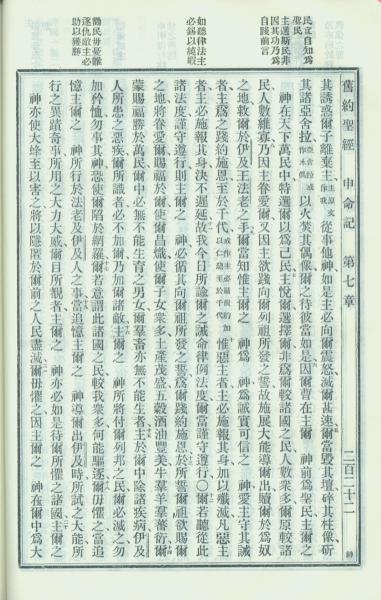 舊約聖經 申命記 第七章 二百二十二
民立自知為
聖民
主選斯民非
因其功乃為
自踐前言
如聽律法主
必錫以純嘏
勸民毋憂雖
逐仇敵主必
助以獲勝
其誘惑子離棄主主原文作我從事他神如是主必向爾震怒滅爾甚速爾當毀其壇碎其柱像斫
其諸亞舍拉亞舍拉或作木偶以火焚其偶像爾之待彼當如是因爾曹在主爾之 神前為聖民主爾之
神在天下萬民中特選爾以為己民主悅爾選擇爾非為爾較諸國之民人數衆多爾原較諸
民人數維寡乃因主眷愛爾又因主欲踐向爾列祖所發之誓故施展大能導爾出贖爾於為奴
之地救爾於伊及王法老之手爾當知惟主爾之 神為 神為誠實可信之 神愛主守其誡
者主為之踐約施恩至於千代惟惡主者主必施報其身加以殲滅凡惡主
者主必施報其身決不遲延故我今日所諭爾之誡命律例法度爾當謹守遵行〇爾若聽從此
諸法度謹守遵行則主爾之 神必循其向爾祖所發之誓為爾踐約施恩於所誓爾祖欲賜爾
之地將眷愛爾賜福於爾使爾昌熾使爾子女衆多土產茂盛五穀酒油豐美牛羣羊羣蕃衍爾
蒙賜福勝於萬民爾中必無不能生育之男女爾羣畜亦無不能生者主於爾中除諸疾病伊及
人所患之惡疾爾所識者必不加爾乃加爾諸敵主爾之 神所將付爾列邦之民爾必滅之勿
加矜恤勿事其神恐使爾陷於網羅爾若意謂此諸國之民較我衆多何能驅逐爾毋懼之當追
憶主爾之 神所行於法老及伊及人之事當追憶主爾之 神導爾出伊及時所試之大能所
行之異蹟奇事所用之大力大威爾目所覩者主爾之 神亦必如是待爾所懼之諸國主爾之
神亦使大蜂至以害之將以隱匿於爾前之人民盡滅爾毋懼之因主爾之 神在爾中為大